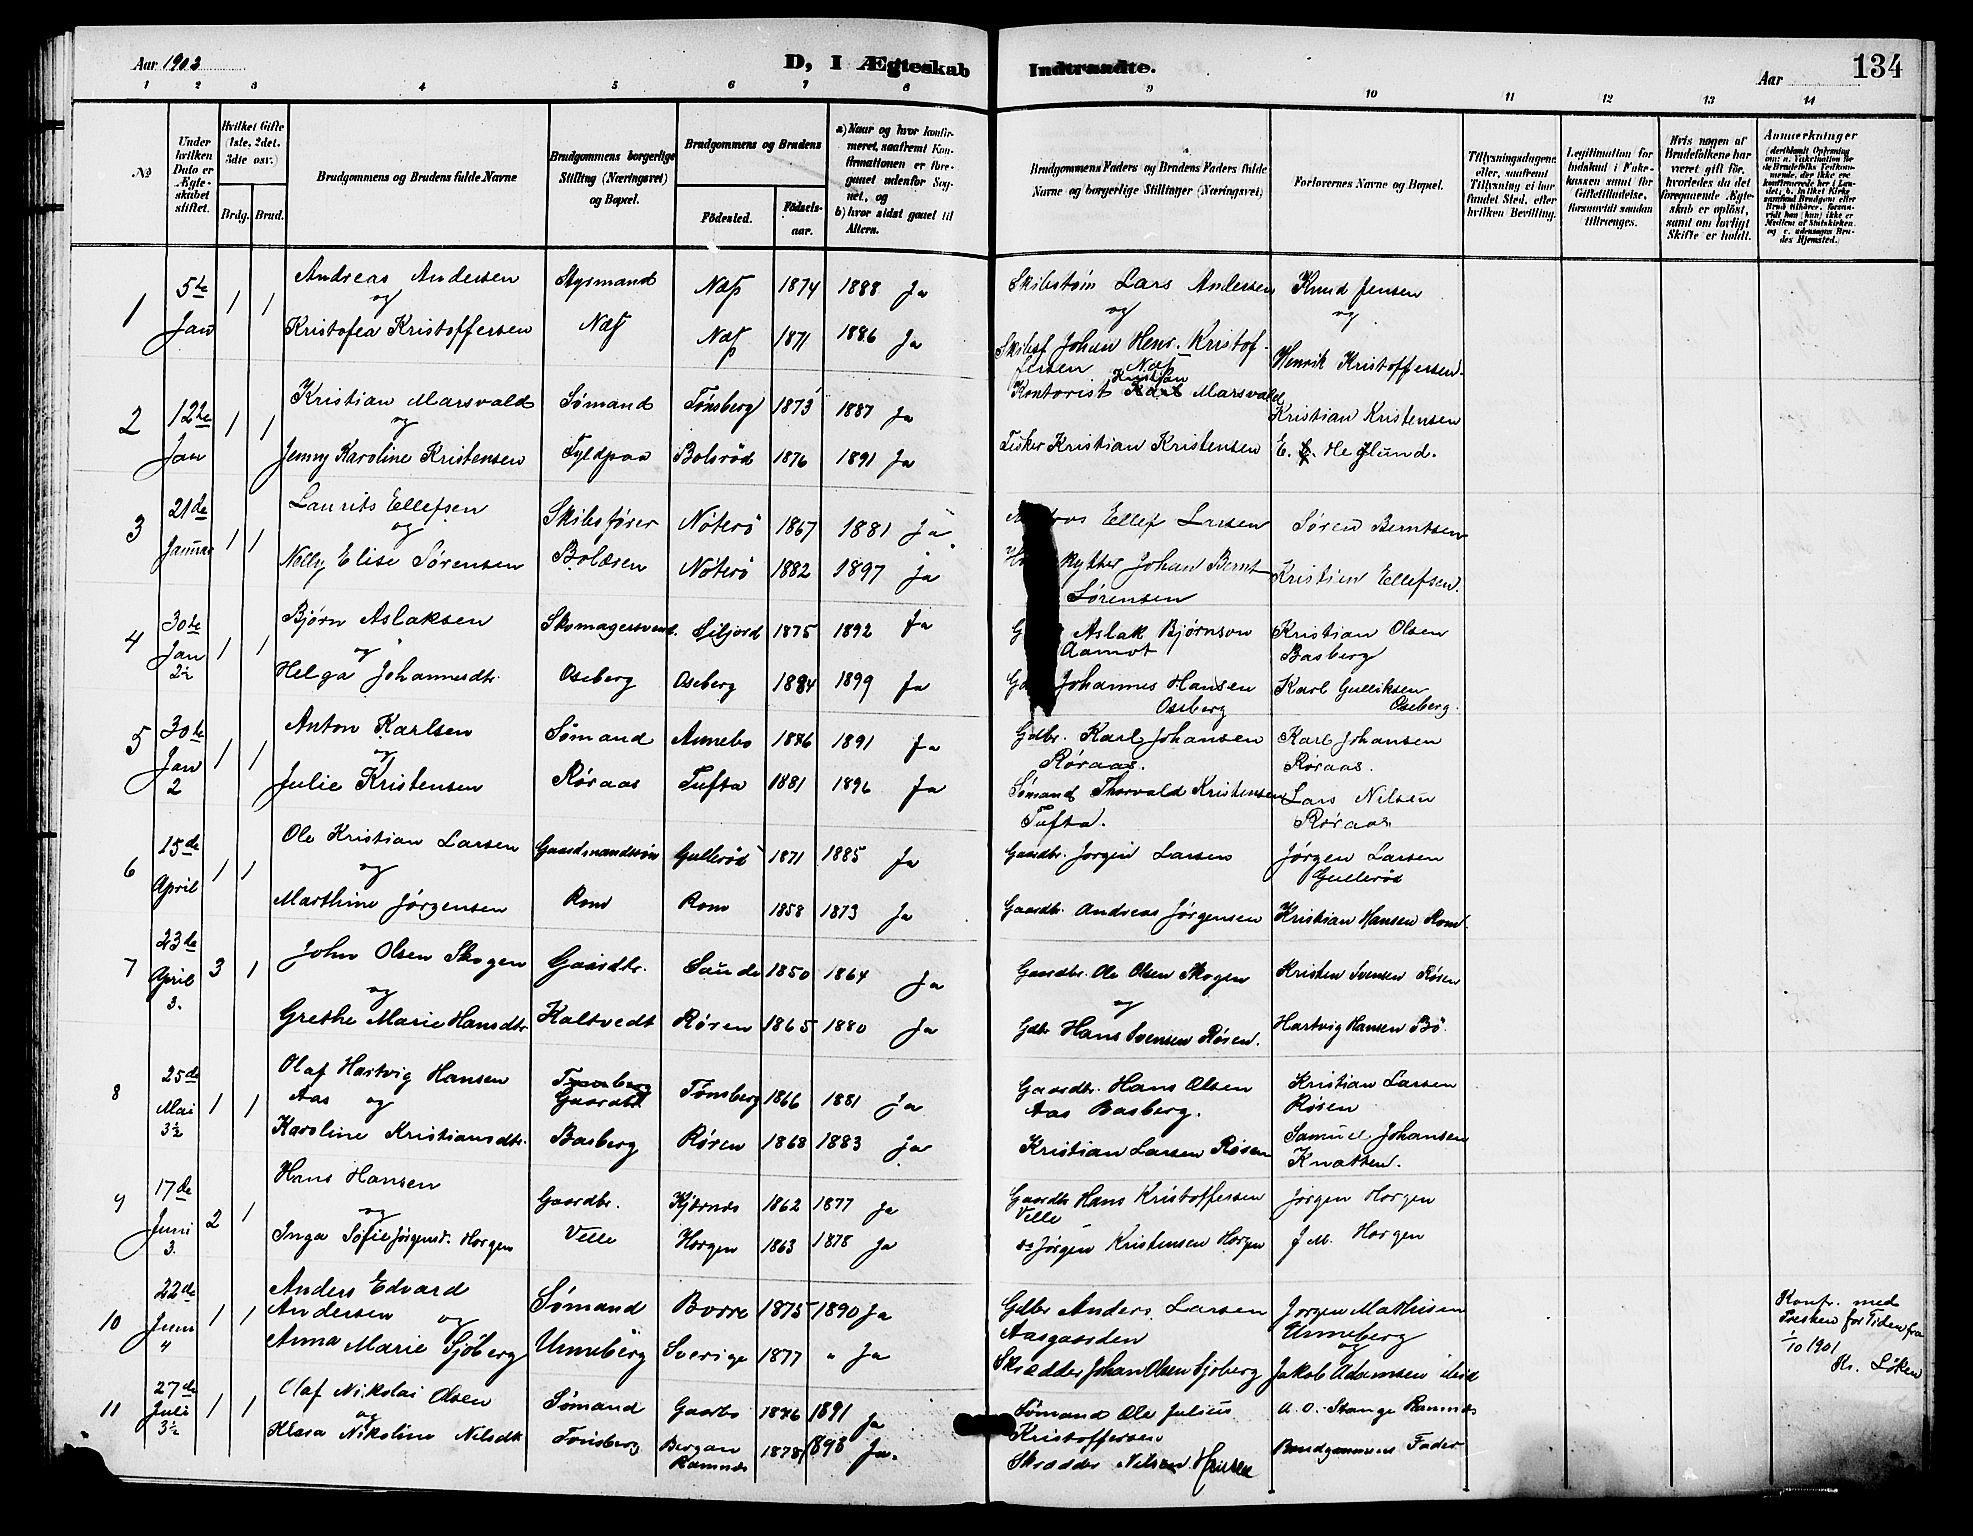 Aar 1903
D, I Ægteskab Indtraadte.
Aar
134
1 2 3 4 5 6 7 8 9 10 11 12 13 14
No
Under hvilken Dato er Ægteskabet stiftet.
Hvilket Gifte (1ste, 2det, 3die osv.)
Brdg. Brud.
Brudgommens og Brudens fulde Navne
Brudgommens borgerlige Stilling (Næringsvei) og Bopæl.
Brudgommens og Brudens
Födested. Födselsaar.
a) Naar og hvor konfirmeret, saafremt Konfirmationen er foregaaet udenfor Sognet, og
b) hvor sidst gaaet til Altern.
Brudgommens Faders og Brudens Faders fulde Navne og borgerlige Stillinger (Næringsvei)
Forlovernes Navne og Bopæl.
Tillysningsdagene, eller, saafremt Tillysning ei har fundet Sted, efter hvilken Bevilling.
Legitimation for Indskud i Enkekassen samt for Giftetilladelse, forsaavidt saadan tiltrænges.
Hvis nogen af Brudefolkene har været gift før, hvorledes da det foregaaende Ægteskab er opløst, samt om lovligt Skifte er holdt.
Anmerkninger
1 5te Jan 1 1 Andreas Andersen Styrmand Næs 1874 1888 Ja Skibstøm Lars Andersen Knud Jensen
og og og
Kristofea Kristoffersen Næs Næs 1871 1886 Ja Skibsf Johan Henr. Kristoffersen Næs Henrik Kristoffersen.
2 12te Jan 1 1 Kristian Marsvald Sømand Tønsberg 1873 1887 Ja Kontorist Kristian Marsvald Kristian Kristensen
og
Jenny Karoline Kristensen Fyldpaa Bolsrød 1876 1891 Ja Fisker Kristian Kristensen E. E. Heglund.
3 21de Januar 1 1 Laurits Ellefsen Skibsfører Nøterø 1867 1881 Ja Ellef Larsen Søren Berntsen
og
Nelly Elise Sørensen Bolæren Nøterø 1882 1897 Ja Johan Bernt Sørensen Kristian Ellefsen.
4 30te Jan 2½ 1 1 Bjørn Aslaksen Skomagersvend. Siljord 1875 1892 Ja Aslak Bjørnson Aamot Kristian Olsen Basberg
og
Helga Johannesdtr. Oseberg Oseberg 1884 1899 Ja Johannes Hansen Oseberg Karl Gulliksen Oseberg.
5 30te Jan 2 1 1 Anton Karlsen Sømand Annebo 1876 1891 Ja Gdbr. Karl Johansen Røraas. Karl Johansen Røraas.
og
Julie Kristensen Røraas Tufta 1881 1896 Ja Sømand Thorvald Kristensen Tufta. Lars Nilsen Røraas
6 15de April 1 1 Ole Kristian Larsen Gaardmandssøn Gullerød 1871 1885 Ja Gaardbr. Jorgen Larsen Jørgen Larsen Gullerød
og
Marthine Jørgensen Rom Rom 1858 1873 Ja Gaardbr. Andreas Jørgensen Kristian Hansen Rom.
7 23de April 3. 3 1 John Olsen Skogen Gaardbr. Saude 1850 1864 Ja Gaardbr. Ole Olsen Skogen Kristen Svensen Røren
og og
Grethe Marie Hansdtr. Kaltvedt Røren 1865 1880 Ja Gdbr Hans Svensen Røren. Hartvig Hansen Bø.
8 25de Mai 3½ 1 1 Olaf Hartvig Hansen Aas Tønsberg Gaardbr Tønsberg 1866 1881 Ja Gaardbr. Hans Olsen Aas Basberg. Kristian Larsen Røren
og
Karoline Kristiansdtr. Basberg Røren 1868 1883 Ja Kristian Larsen Røren Samuel Johansen Knatten.
9 17de Juni 3. 2 1 Hans Hansen Gaardbr. Kjærnes 1862 1877 Ja Gaardbr Hans Kristoffersen Velle Jørgen Horgen
og
Inga Sofie Jørgensd. Horgen Velle Horgen 1863 1878 Ja Jørgen Kristensen Horgen J M. Horgen
10 22de Juni 4 1 1 Anders Edvard Andersen Sømand Borre 1875 1890 Ja Gdbr Anders Larsen Aasgaarden Jorgen Mathisen Unneberg
og og
Anna Marie Sjöberg Unneberg Sverige 1877 " Ja Skrædder Johan Olsen Sjoberg Jakob Adamsen ibid
Konfr. med Presten for Tiden fra 1/10 1901 Kr. Løken
11 27de Juli 3½ 1 1 Olaf Nikolai Olsen Sømand Gaarbo 1876 1891 Ja Sømand Ole Julius Kristoffersen A. O. Stange Ramnes
og
Klara Nikoline Nilsdtr Tønsberg Bergan Ramnes 1878 1893 Ja. Skrædder Nilsen Hansen Brudgommens Fader